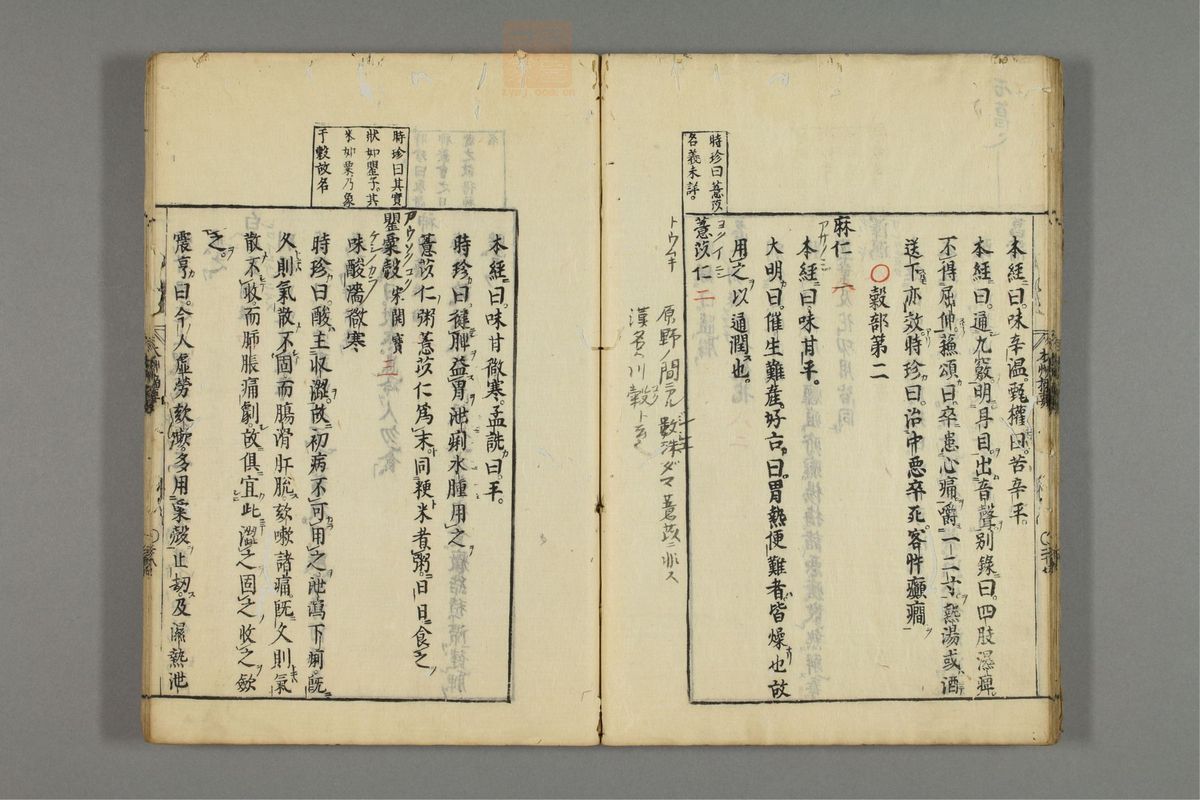 本經曰。味辛溫。甄權曰。苦辛平。
本經曰。通九竅明耳目出音聲。別錄曰。四肢濕痺
不得屈伸。蘓頌曰。卒患心痛嚼一二寸熱湯或酒
送下亦效。時珍曰。治中惡卒死。客忤癲癇
○穀部第二
麻仁一
アサノミ
本經曰味甘平。
大明曰。催生難産。好古曰。胃熱便難者皆燥也故
用之以通潤也。
時珍曰薏苡
名義未詳。
薏苡仁二
ヨクイニン
トウムギ
原野ノ間ニ
數珠ダマ薏苡ニ非ス
漢名ハ川穀ト云
本經曰。味甘微寒。孟詵曰。平。
時珍曰。健脾益胃泄痢水腫用之
薏苡仁粥薏苡仁爲末。同粳米煮粥。日日食之
時珍曰其實
狀如罌子。其
米如粟。乃象
于穀故名
罌粟殼
三
味酸濇微寒
時珍曰。酸主收澀。故初病不可用之泄瀉下痢。旣
久則氣散不固。而腸滑肛脫。欬嗽諸痛旣久則氣
散不收。而肺脹痛劇。故俱宜此澀之固之收之斂
之。
震亨曰。今人虛勞欬嗽。多用粟殼止劫。及濕熱泄